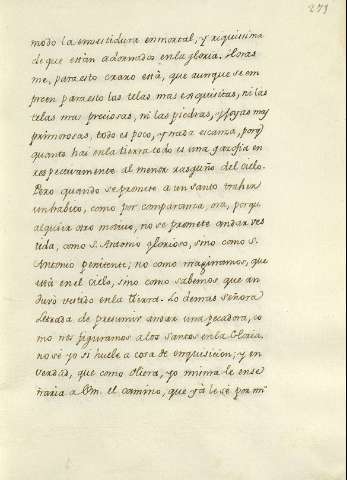 273
modo la envestidura enmortal, y riquissima
de que están adornados en la gloria.
me, para esto craxo está, que aunque se em
preen para esto las telas mas exquisitas, ni las
telas mas preciosas, ni las piedras, y joyas mas
primorosas, todo es poco, y nada alcanza, porq
quanto hai en la tierra todo es una gazofia en
respectivamente al menor rasguño del cielo.
Pero quando se promete a un santo traher
un habito, como por comparanza, ora, porqu
alquiera otro motivo, no se promete andar ves
tida, como S. Antonio glorioso, sino como S.
Antonio penitente; no como imaginamos, que
está en el cielo, sino como sabemos que an
dubo vestido en la tierra. Lo demas señora
Letrada de presumir andar una pecadora, co
mo nos figuramos a los santos en la Gloria
no sé yo si huele a cosa de inquisicion; y en
verdad, que como oliera, yo misma le ense
ñaria a Vm. el camino, que ya le sé por mi